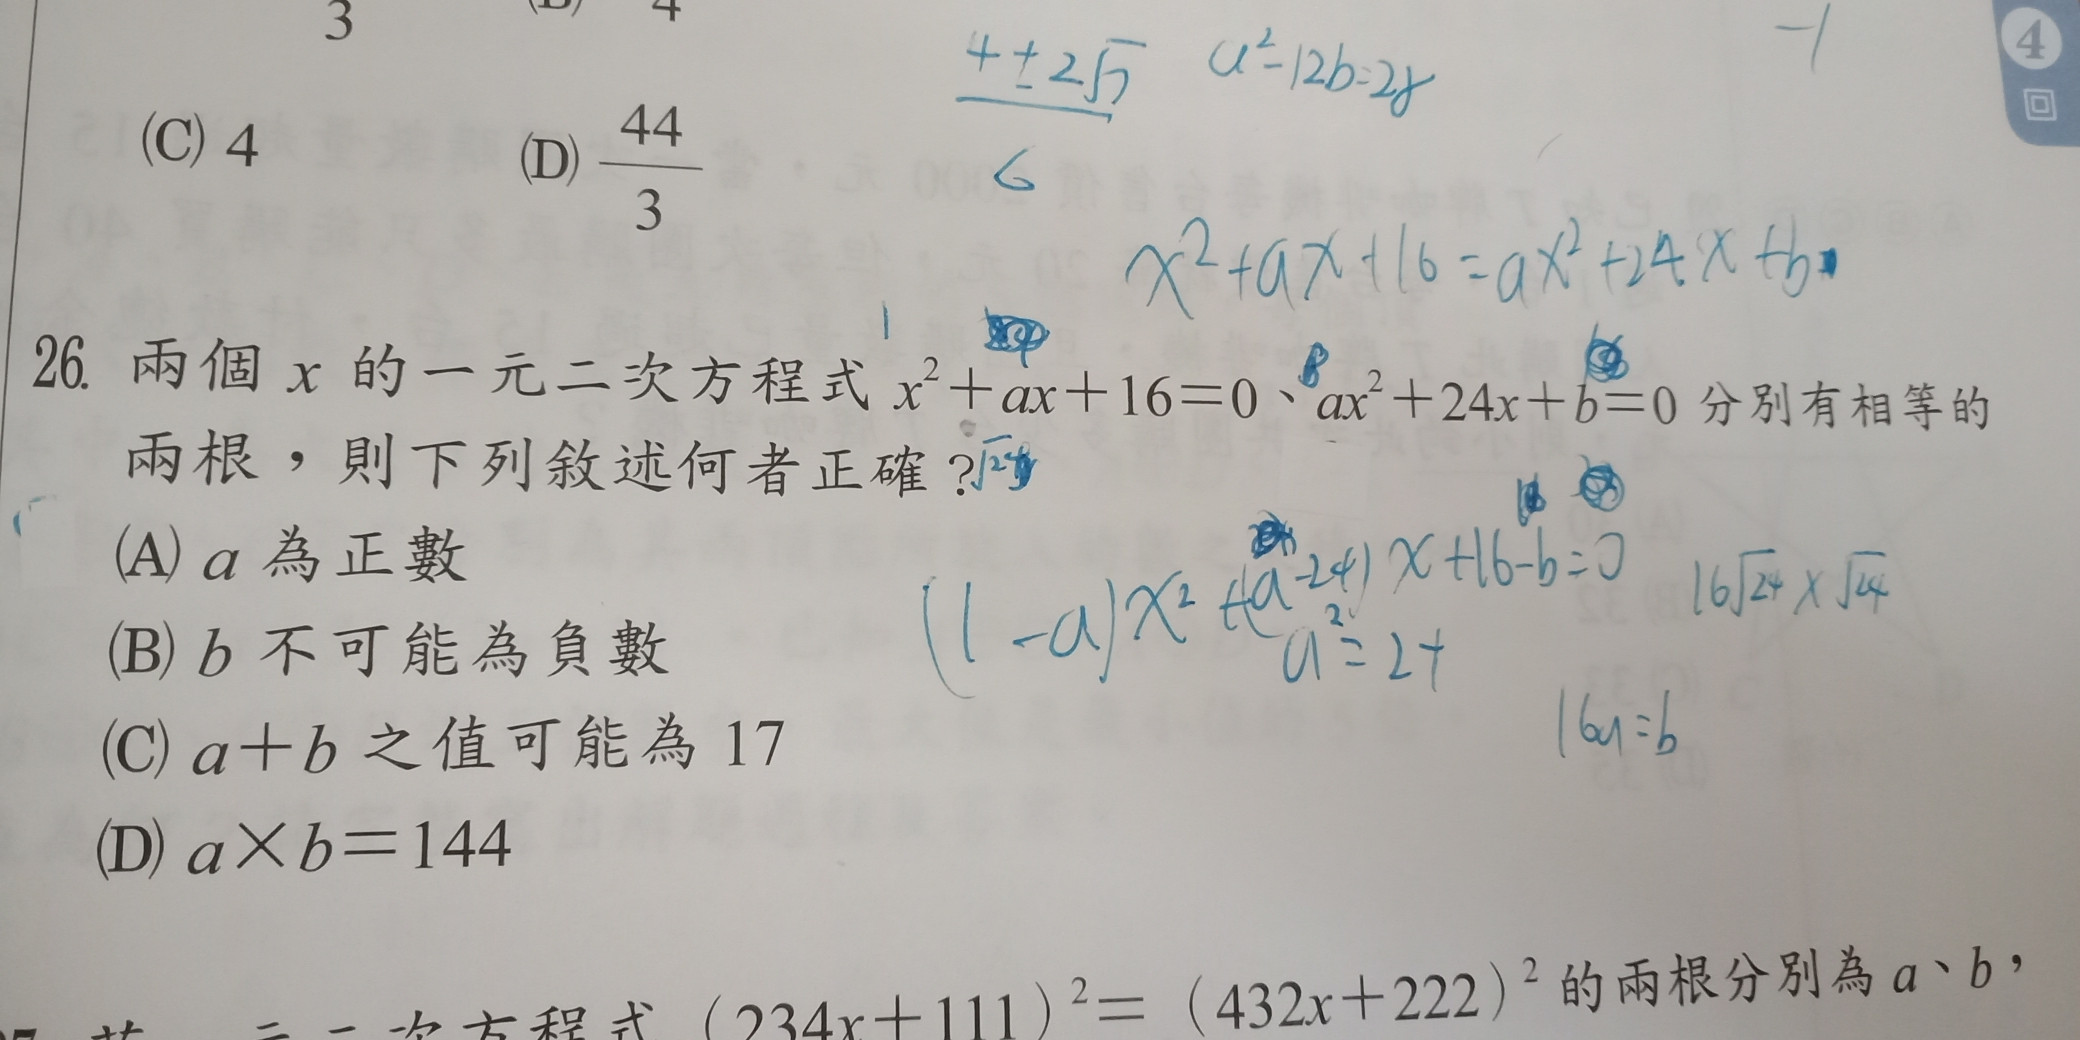 3
4
4 ± 2√7
6
a²-12b=28
-1
4
回
(C) 4
(D) 44/3
x²+ax+16=ax²+24x+b
1
26. 兩個 x 的一元二次方程式 x²+ax+16=0、ax²+24x+b=0 分別有相等的
兩根，則下列敘述何者正確？
(A) a 為正數
(B) b 不可能為負數
(C) a+b 之值可能為 17
(D) a×b=144
(1-a)x²+(a-24)x+16-b=0
a²=24
16√24×√24
16a=b
一元二次方程式（234x+111）²=（432x+222）²的兩根分別為 a、b，